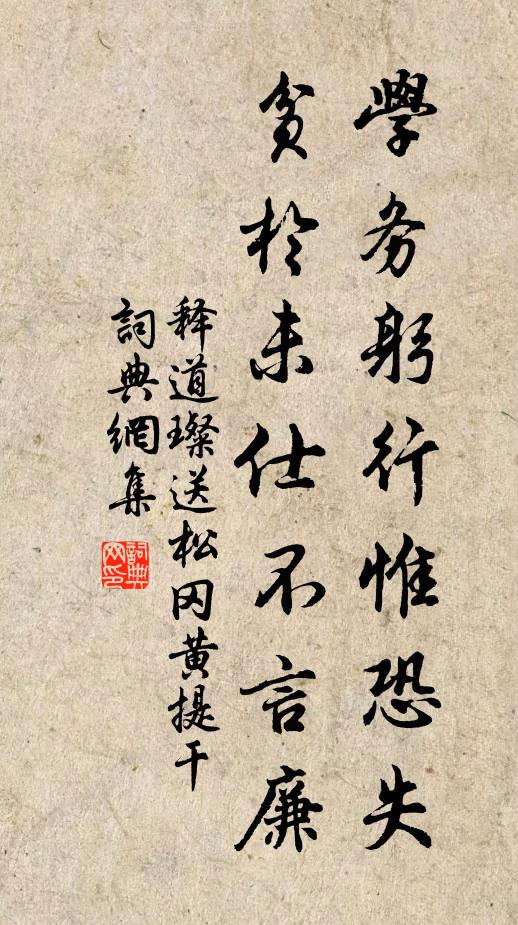 學务躬行惟恐失
貧於未仕不言廉
释道璨送松冈黄提干
詞典網集
詞典
网印